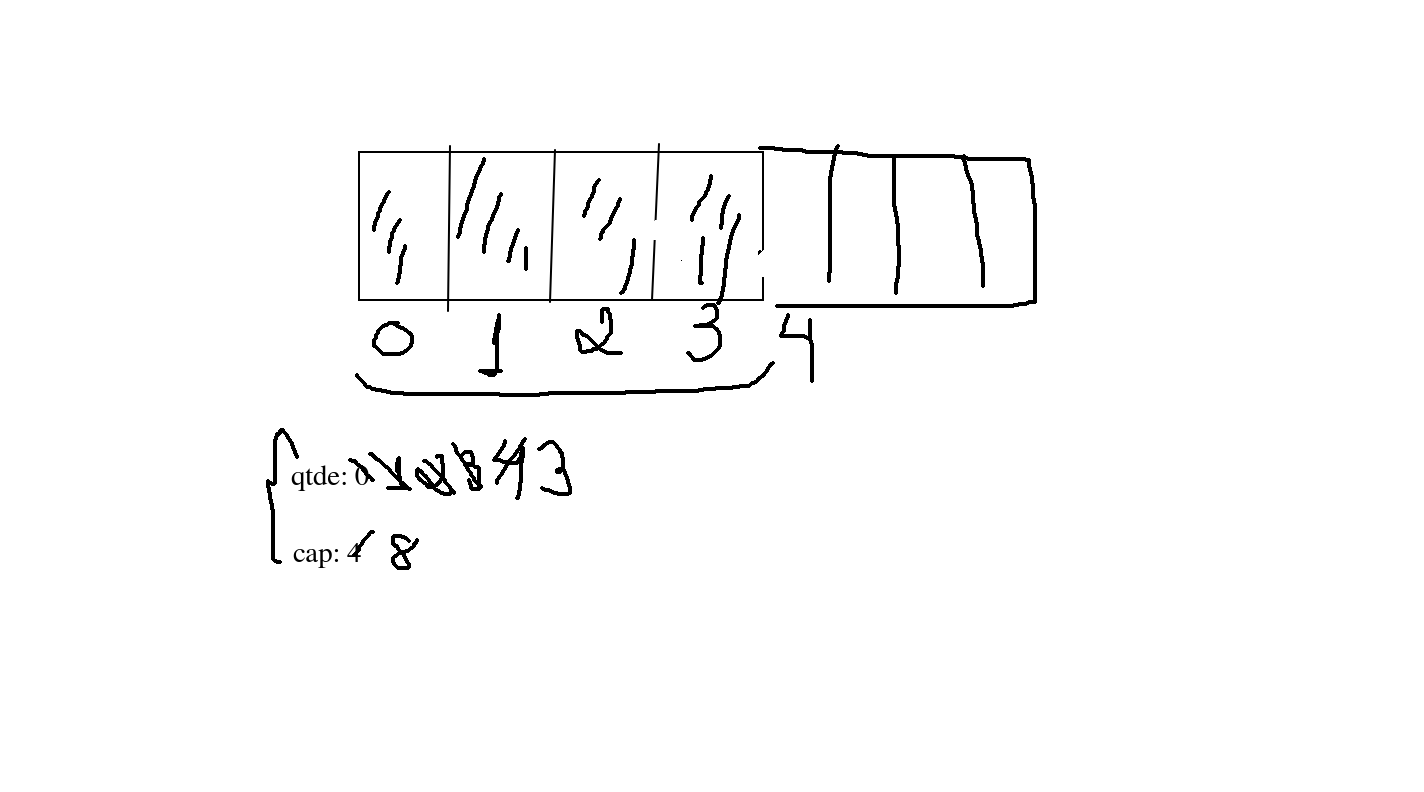 0 1 2 3 4
qtde: 0 1 2 3 4 3
cap: 4 8